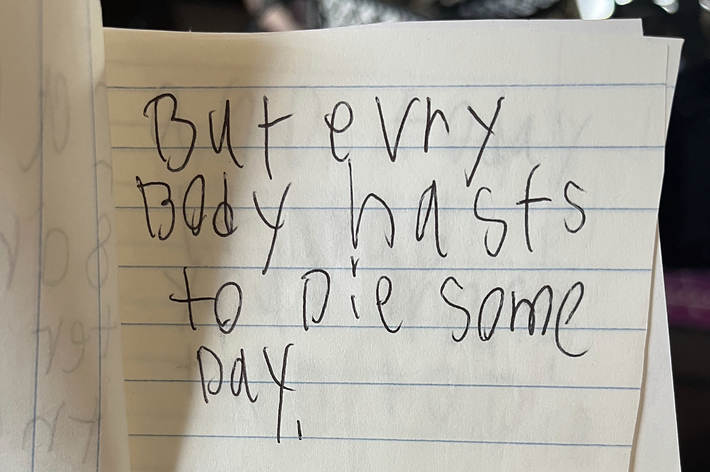 But evry
Body hasts
to Die some
Day.